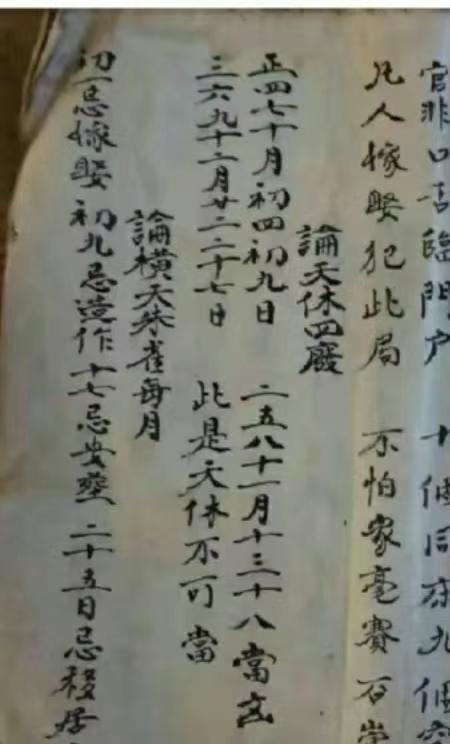 官非口舌臨門户 十個同存九個
凡人嫁娶犯此局 不怕家毫賽石崇
論天休四廢
正四七十月初四初九日 二五八十一月十三十八當
三六九十二月廿二二十七日 此是天休不可當
論横天朱雀每月
初一忌嫁娶 初九忌造作 十七忌安塟 二十五日忌移居